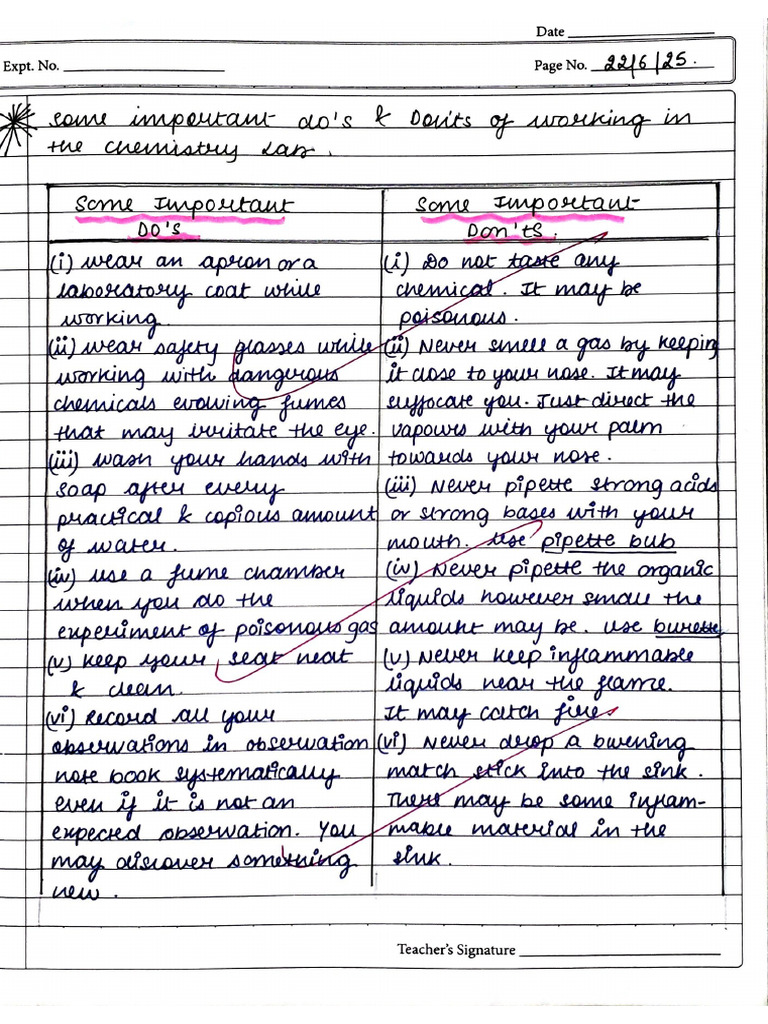 Date
Expt. No.
Page No. 22/6/25.
Some important do's & Don'ts of working in
the chemistry Lab.
Some Important
DO's
(i) wear an apron or a
laboratory coat while
working.
(ii) wear safety glasses while
working with dangerous
chemicals evolving fumes
that may irritate the eye.
(iii) wash your hands with
soap after every
practical & copious amount
of water.
(iv) use a fume chamber
when you do the
experiment of poisonous gas
(v) keep your seat neat
& clean.
(vi) Record all your
observations in observation
note book systematically
even if it is not an
expected observation. You
may discover something
new.
Some Important
Don'ts.
(i) Do not taste any
chemical. It may be
poisonous.
(ii) Never smell a gas by keeping
it close to your nose. It may
suffocate you. Just direct the
vapours with your palm
towards your nose.
(iii) Never pipette strong acids
or strong bases with your
mouth. Use pipette bub
(iv) Never pipette the organic
liquids however small the
amount may be. use burette
(v) Never keep inflammable
liquids near the flame.
It may catch fire.
(vi) Never drop a burning
match stick into the sink.
There may be some inflam-
mable material in the
sink.
Teacher's Signature